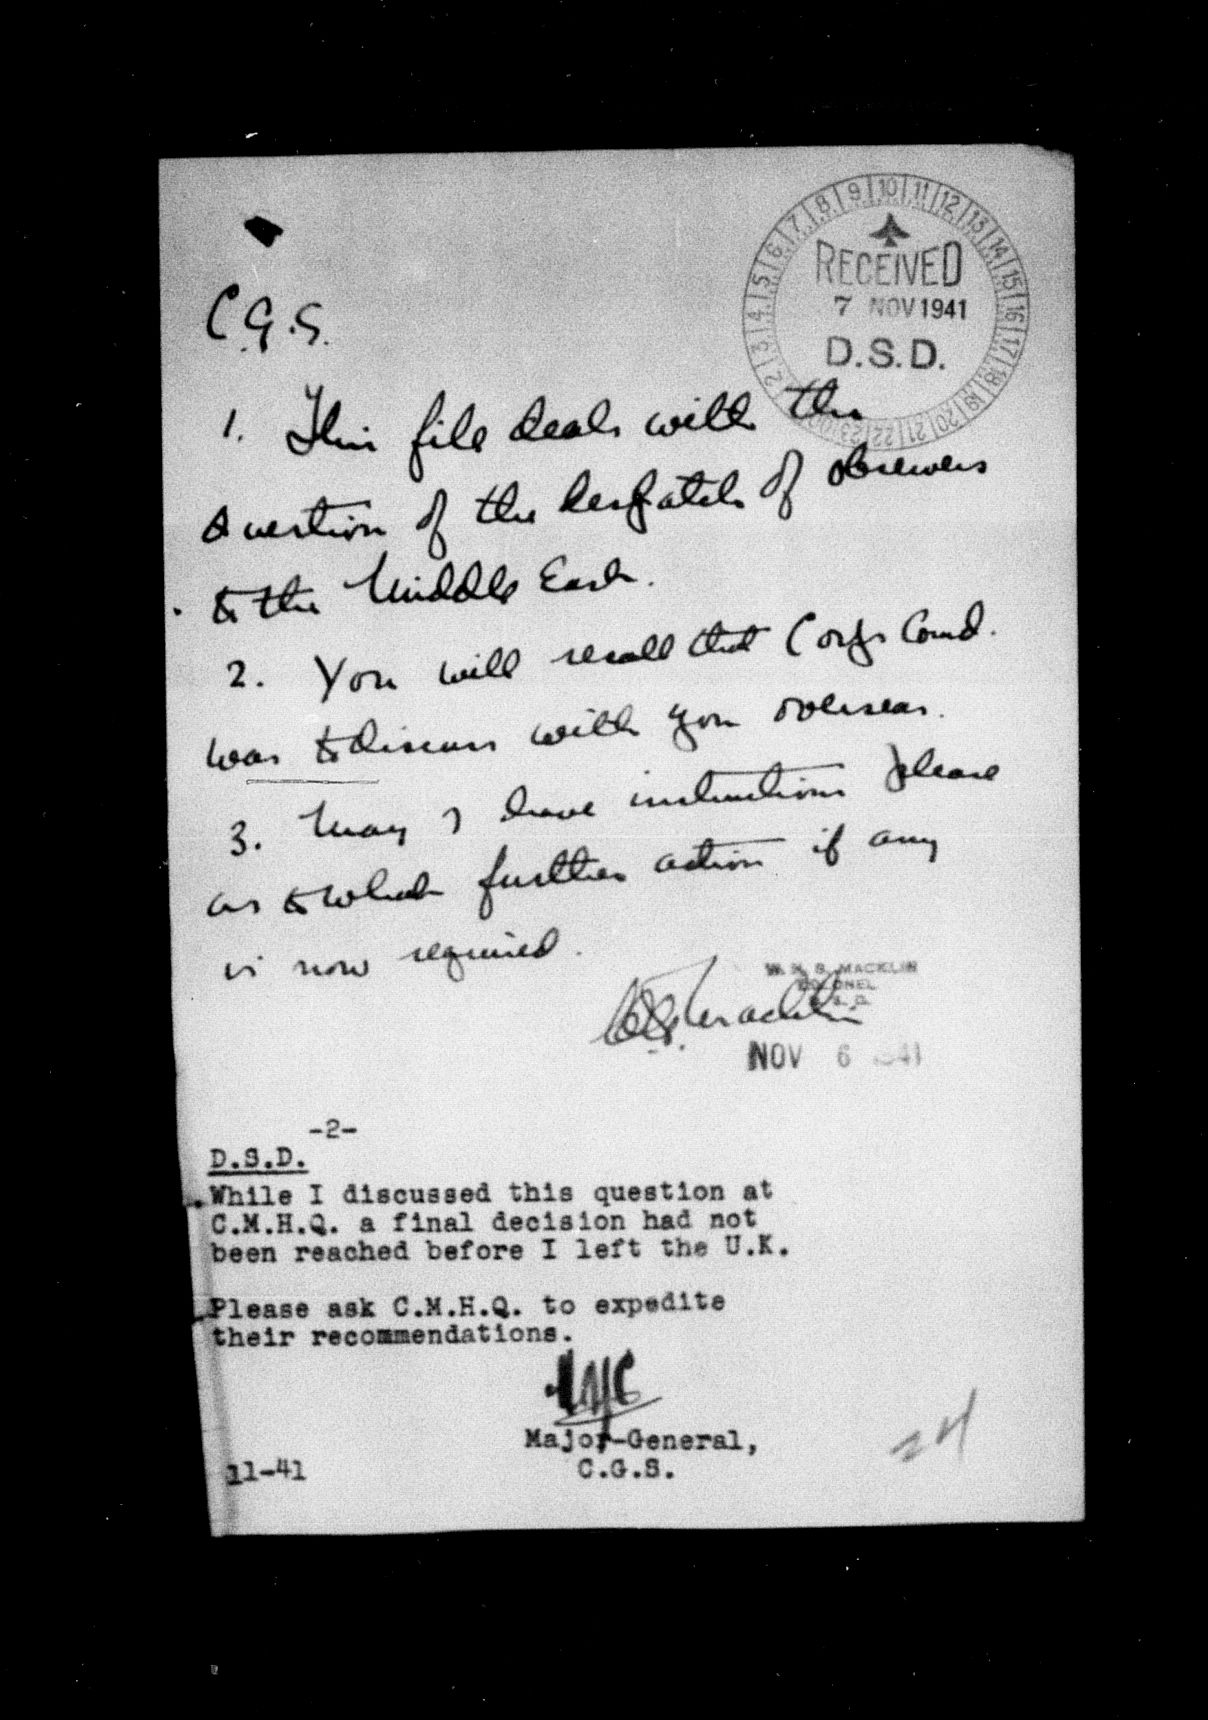 RECEIVED
7 NOV 1941
D.S.D.
2 3 4 5 6 7 8 9 10 11 12 13 14 15 16 17 18 19 20 21 22 23
C.G.S.
1. This file deals with the
question of the despatch of observers
to the Middle East.
2. You will recall that Corps Comd.
was to discuss with you overseas.
3. May I have instructions please
as to what further action if any
is now required.
W. H. S. MACKLIN
COLONEL
D. S. D.
WHS Macklin
NOV 6 1941
-2-
D.S.D.
While I discussed this question at
C.M.H.Q. a final decision had not
been reached before I left the U.K.
Please ask C.M.H.Q. to expedite
their recommendations.
Major-General,
C.G.S.
11-41
24